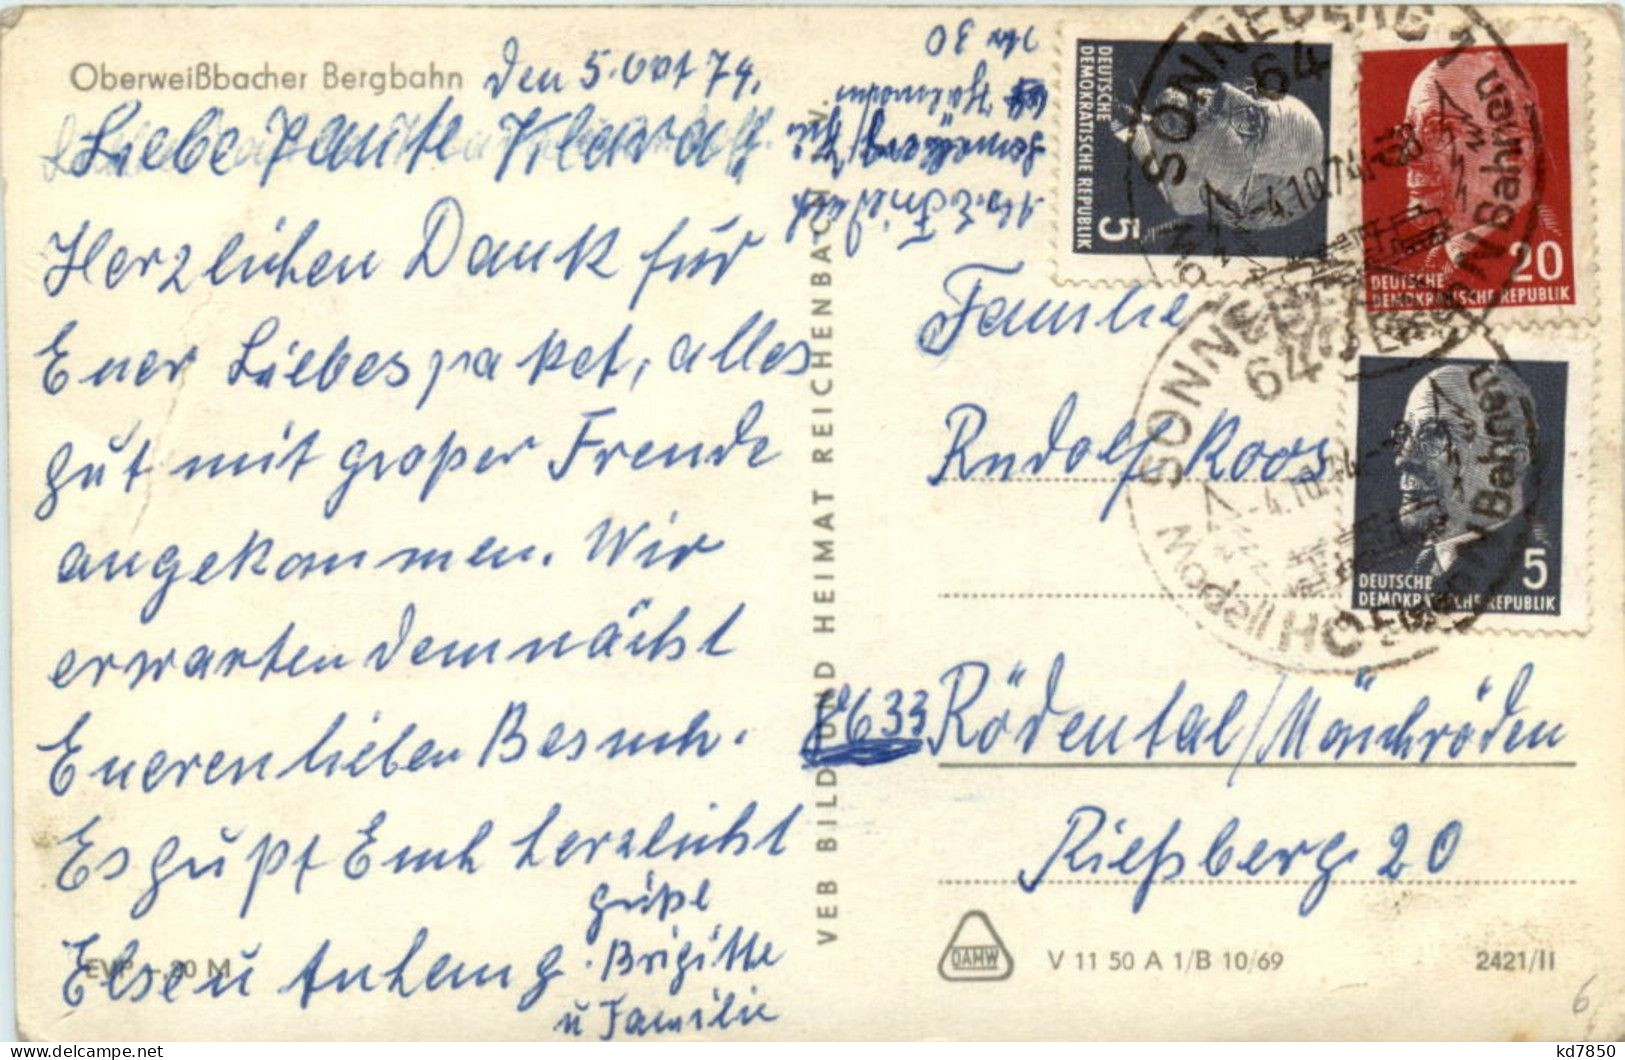 Oberweißbacher Bergbahn
den 5. Oct 74.
Liebe Tante
Herzlichen Dank für
Euer Liebespaket, alles
gut mit großer Freude
angekommen. Wir
erwarten demnächst
Eueren lieben Besuch.
Es grüßt Euch herzlichst
Else u Anhang
grüße
Brigitte
u Familie
EVP -,20 M
VEB BILD UND HEIMAT REICHENBACH I. V.
Sonneberg/Thü
Nr 30
Familie
Rudolf Koos
8633 Rödental/Mönchröden
Rießberg 20
DEUTSCHE
DEMOKRATISCHE REPUBLIK
5
DEUTSCHE
DEMOKRATISCHE REPUBLIK
20
DEUTSCHE
DEMOKRATISCHE REPUBLIK
5
SONNEBERG 1
64
-4.10.74
SONNEBERG
64
-4.10.74
DAMW
V 11 50 A 1/B 10/69
2421/II
6
kd7850